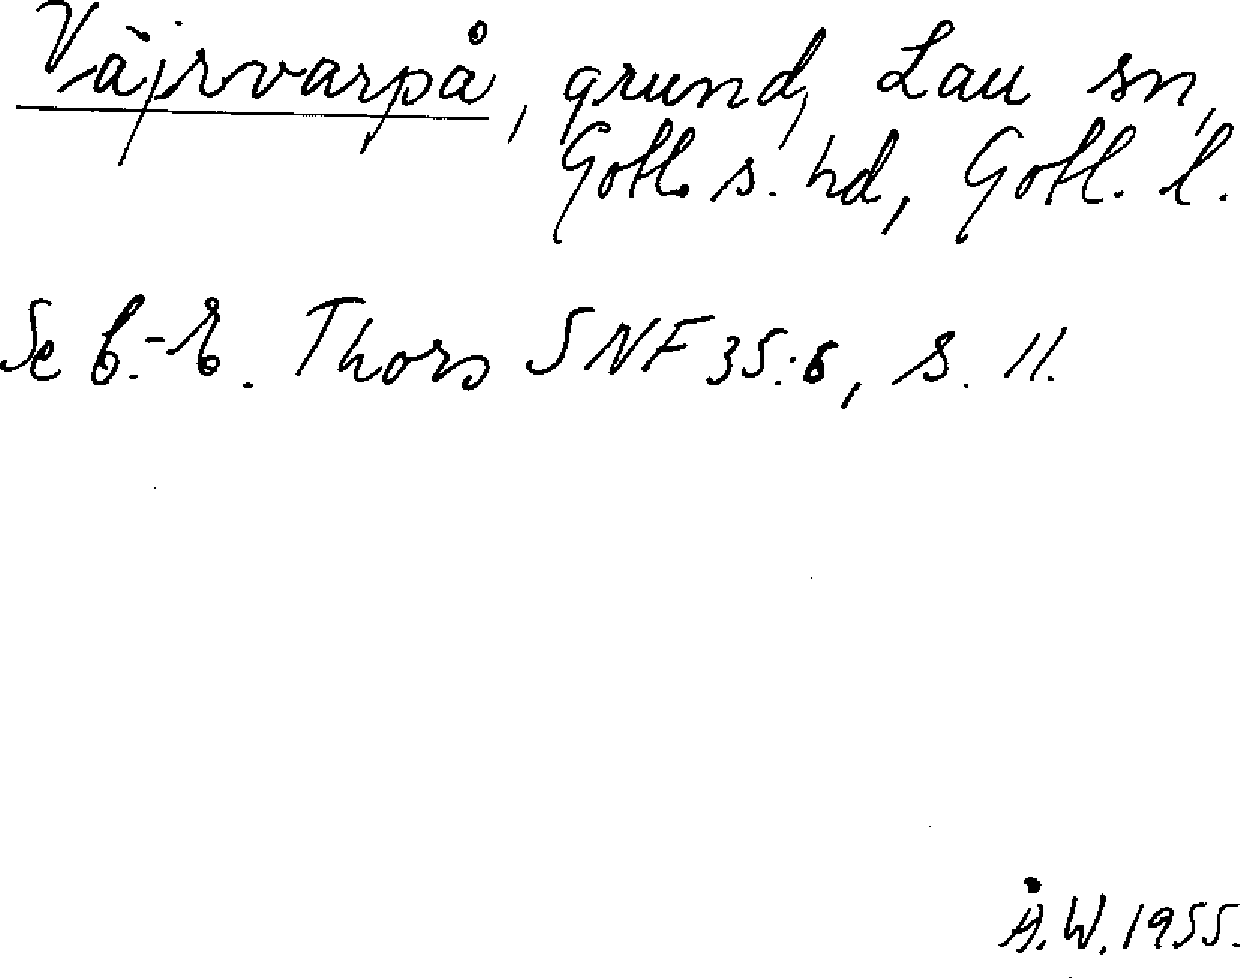 Väjrvarpå, grund, Lau sn,
Gotl. s. hd, Gotl. l.
Se C.-E. Thors SNF 35:6, s. 11.
Å.W. 1955.